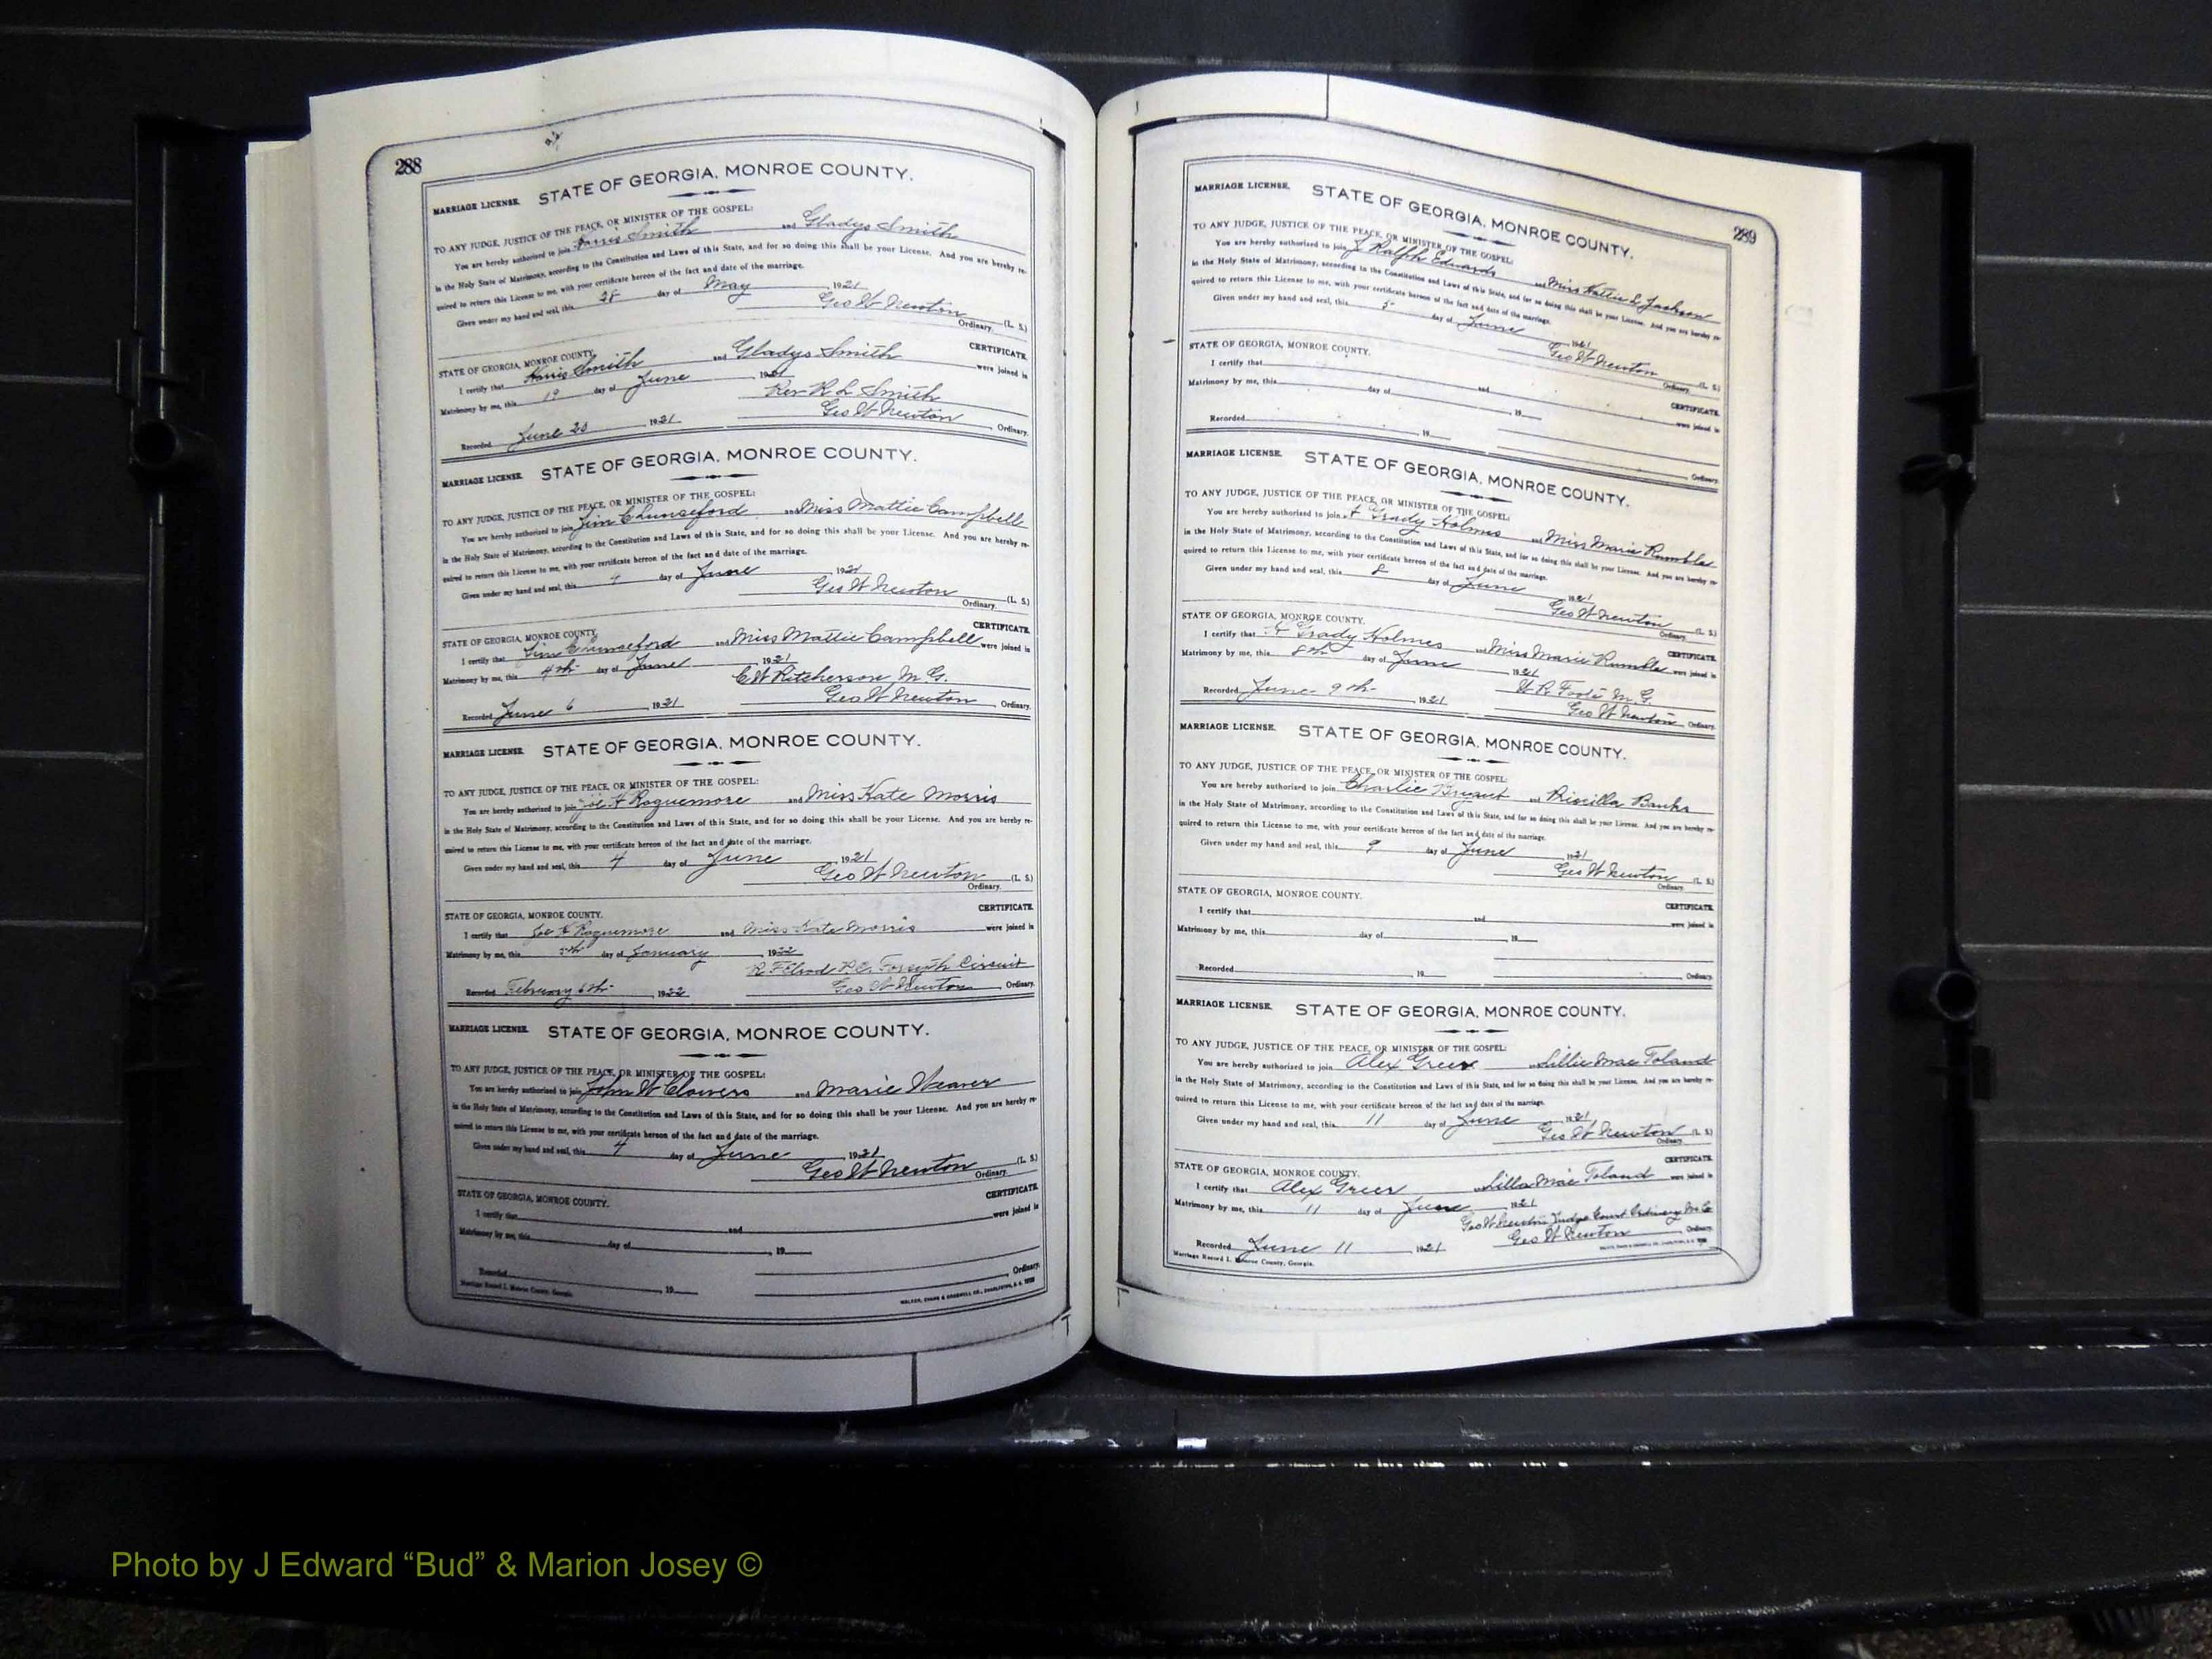 288
MARRIAGE LICENSE. STATE OF GEORGIA, MONROE COUNTY.
TO ANY JUDGE, JUSTICE OF THE PEACE, OR MINISTER OF THE GOSPEL:
You are hereby authorized to join Harris Smith and Gladys Smith
in the Holy State of Matrimony, according to the Constitution and Laws of this State, and for so doing this shall be your License. And you are hereby re-
quired to return this License to me, with your certificate hereon of the fact and date of the marriage.
Given under my hand and seal, this 28 day of May, 1921
Geo W Newton (L. S.)
Ordinary.
CERTIFICATE.
STATE OF GEORGIA, MONROE COUNTY.
I certify that Harris Smith and Gladys Smith were joined in
Matrimony by me, this 19 day of June, 1921
Rev R L Smith
Recorded June 20, 1921 Geo W Newton, Ordinary.
MARRIAGE LICENSE. STATE OF GEORGIA, MONROE COUNTY.
TO ANY JUDGE, JUSTICE OF THE PEACE, OR MINISTER OF THE GOSPEL:
You are hereby authorized to join Jim Chunseford and Miss Mattie Campbell
in the Holy State of Matrimony, according to the Constitution and Laws of this State, and for so doing this shall be your License. And you are hereby re-
quired to return this License to me, with your certificate hereon of the fact and date of the marriage.
Given under my hand and seal, this 4 day of June, 1921
Geo W Newton (L. S.)
Ordinary.
CERTIFICATE.
STATE OF GEORGIA, MONROE COUNTY.
I certify that Jim Chunseford and Miss Mattie Campbell were joined in
Matrimony by me, this 4th day of June, 1921
C W Ritcherson M.G.
Recorded June 6, 1921 Geo W Newton, Ordinary.
MARRIAGE LICENSE. STATE OF GEORGIA, MONROE COUNTY.
TO ANY JUDGE, JUSTICE OF THE PEACE, OR MINISTER OF THE GOSPEL:
You are hereby authorized to join Joe H Roquemore and Miss Kate Morris
in the Holy State of Matrimony, according to the Constitution and Laws of this State, and for so doing this shall be your License. And you are hereby re-
quired to return this License to me, with your certificate hereon of the fact and date of the marriage.
Given under my hand and seal, this 4 day of June, 1921
Geo W Newton (L. S.)
Ordinary.
CERTIFICATE.
STATE OF GEORGIA, MONROE COUNTY.
I certify that Joe H Roquemore and Miss Kate Morris were joined in
Matrimony by me, this 5th day of January, 1922
R F Elrod P.C. Forsyth Circuit
Recorded February 6th, 1922 Geo W Newton, Ordinary.
MARRIAGE LICENSE. STATE OF GEORGIA, MONROE COUNTY.
TO ANY JUDGE, JUSTICE OF THE PEACE, OR MINISTER OF THE GOSPEL:
You are hereby authorized to join John W Clowers and Marie Weaver
in the Holy State of Matrimony, according to the Constitution and Laws of this State, and for so doing this shall be your License. And you are hereby re-
quired to return this License to me, with your certificate hereon of the fact and date of the marriage.
Given under my hand and seal, this 4 day of June, 1921
Geo W Newton (L. S.)
Ordinary.
CERTIFICATE.
STATE OF GEORGIA, MONROE COUNTY.
I certify that and were joined in
Matrimony by me, this day of, 19
Recorded, 19 , Ordinary.
Marriage Record I. Monroe County, Georgia. WALKER, EVANS & COGSWELL CO., CHARLESTON, S. C.
289
MARRIAGE LICENSE. STATE OF GEORGIA, MONROE COUNTY.
TO ANY JUDGE, JUSTICE OF THE PEACE, OR MINISTER OF THE GOSPEL:
You are hereby authorized to join J Ralph Edwards and Miss Hattie L Jackson
in the Holy State of Matrimony, according to the Constitution and Laws of this State, and for so doing this shall be your License. And you are hereby re-
quired to return this License to me, with your certificate hereon of the fact and date of the marriage.
Given under my hand and seal, this 5 day of June, 1921
Geo W Newton (L. S.)
Ordinary.
CERTIFICATE.
STATE OF GEORGIA, MONROE COUNTY.
I certify that and were joined in
Matrimony by me, this day of, 19
Recorded, 19 , Ordinary.
MARRIAGE LICENSE. STATE OF GEORGIA, MONROE COUNTY.
TO ANY JUDGE, JUSTICE OF THE PEACE, OR MINISTER OF THE GOSPEL:
You are hereby authorized to join Grady Holmes and Miss Marie Rumble
in the Holy State of Matrimony, according to the Constitution and Laws of this State, and for so doing this shall be your License. And you are hereby re-
quired to return this License to me, with your certificate hereon of the fact and date of the marriage.
Given under my hand and seal, this 8 day of June, 1921
Geo W Newton (L. S.)
Ordinary.
CERTIFICATE.
STATE OF GEORGIA, MONROE COUNTY.
I certify that Grady Holmes and Miss Marie Rumble were joined in
Matrimony by me, this 8th day of June, 1921
W R Foote M.G.
Recorded June 9th, 1921 Geo W Newton, Ordinary.
MARRIAGE LICENSE. STATE OF GEORGIA, MONROE COUNTY.
TO ANY JUDGE, JUSTICE OF THE PEACE, OR MINISTER OF THE GOSPEL:
You are hereby authorized to join Charlie Bryant and Priscilla Banks
in the Holy State of Matrimony, according to the Constitution and Laws of this State, and for so doing this shall be your License. And you are hereby re-
quired to return this License to me, with your certificate hereon of the fact and date of the marriage.
Given under my hand and seal, this 9 day of June, 1921
Geo W Newton (L. S.)
Ordinary.
CERTIFICATE.
STATE OF GEORGIA, MONROE COUNTY.
I certify that and were joined in
Matrimony by me, this day of, 19
Recorded, 19 , Ordinary.
MARRIAGE LICENSE. STATE OF GEORGIA, MONROE COUNTY.
TO ANY JUDGE, JUSTICE OF THE PEACE, OR MINISTER OF THE GOSPEL:
You are hereby authorized to join Alex Greer and Lillie Mae Toland
in the Holy State of Matrimony, according to the Constitution and Laws of this State, and for so doing this shall be your License. And you are hereby re-
quired to return this License to me, with your certificate hereon of the fact and date of the marriage.
Given under my hand and seal, this 11 day of June, 1921
Geo W Newton (L. S.)
Ordinary.
CERTIFICATE.
STATE OF GEORGIA, MONROE COUNTY.
I certify that Alex Greer and Lilla Mae Toland were joined in
Matrimony by me, this 11 day of June, 1921
Geo W Newton Judge Court Ordinary M Co
Recorded June 11, 1921 Geo W Newton, Ordinary.
Marriage Record I. Monroe County, Georgia.
Photo by J Edward “Bud” & Marion Josey ©